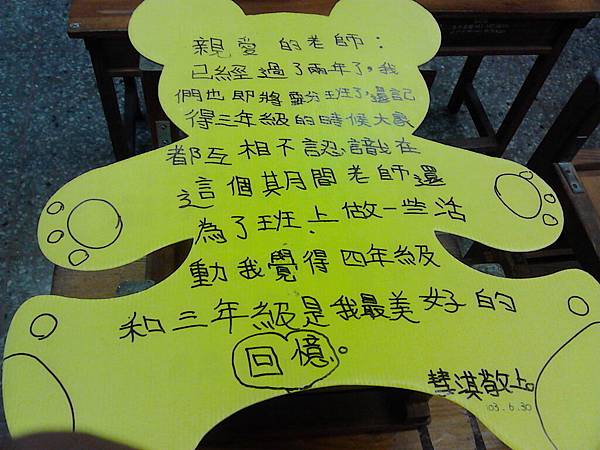 親愛的老師：
已經過了兩年了，我
們也即將要分班了，還記
得三年級的時候大家
都互相不認識在
這個期間老師還
為了班上做一些活
動我覺得四年級
和三年級是我最美好的
回憶。
彗淇敬上。
103.6.30